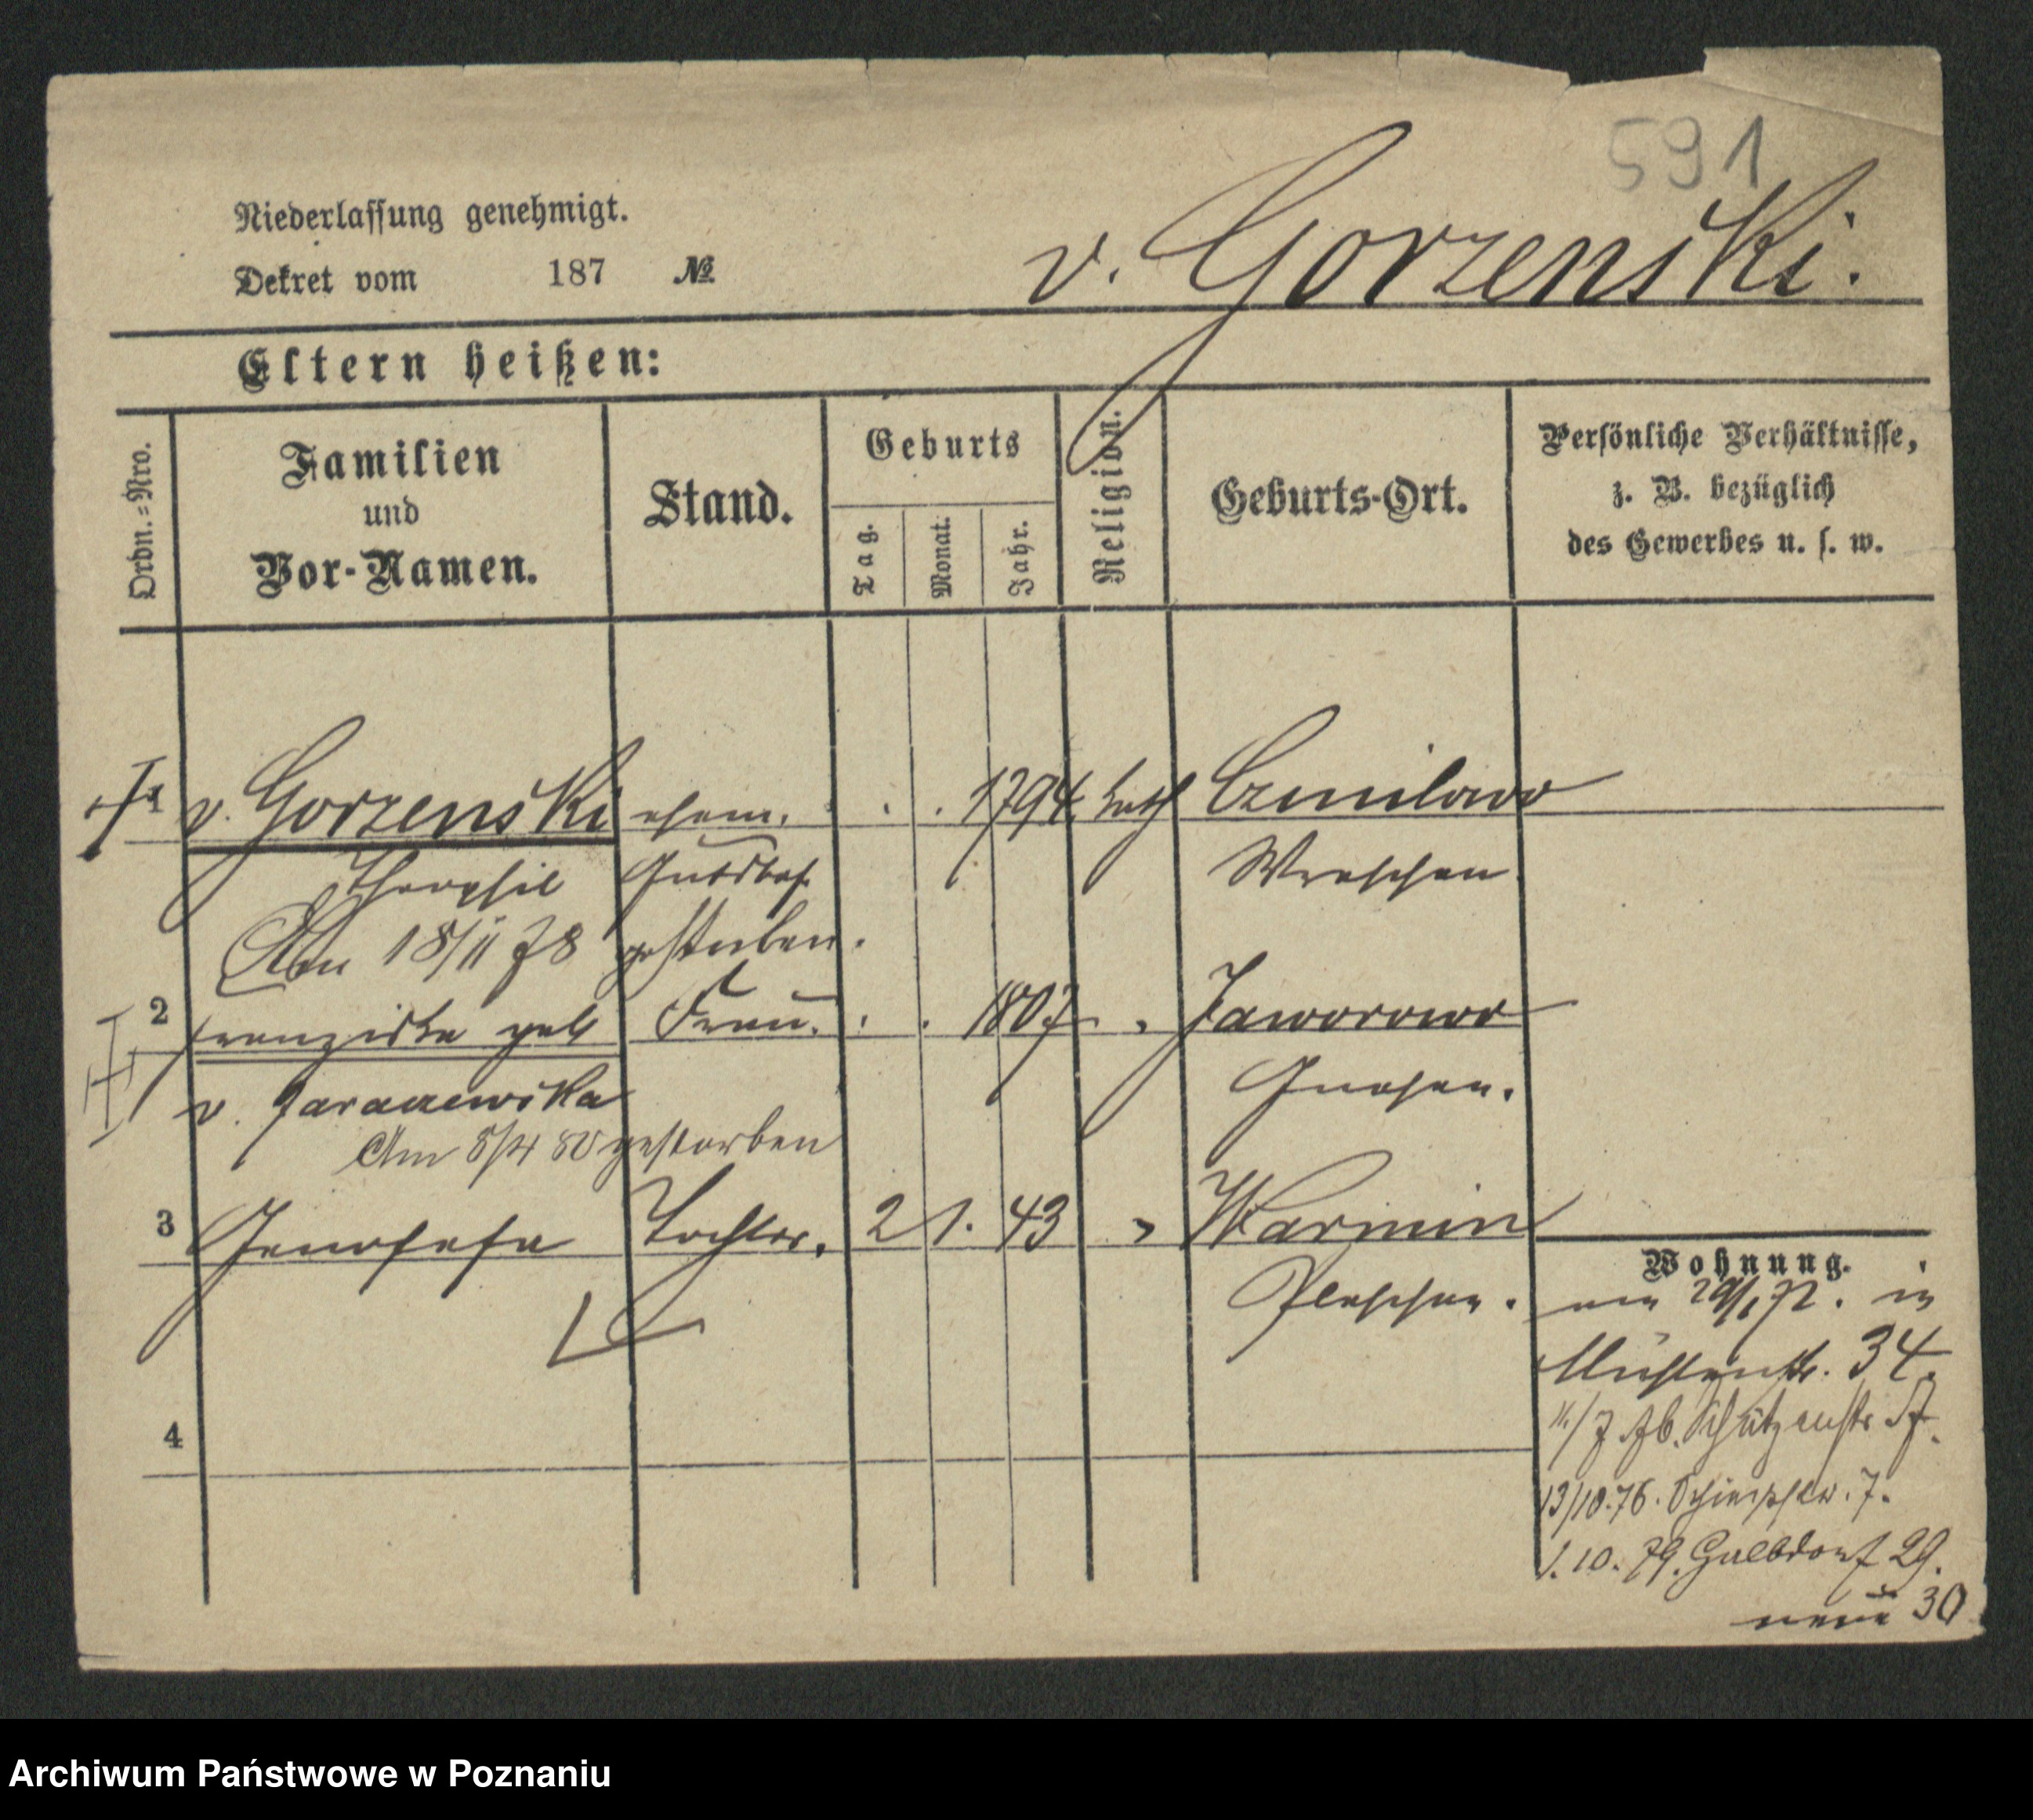 591
Niederlassung genehmigt.
Dekret vom 187 №
v. Gorzenski.
Eltern heißen:
Ordn.=Nro.
Familien
und
Vor-Namen.
Stand.
Geburts
Tag.
Monat.
Jahr.
Religion.
Geburts-Ort.
Persönliche Verhältnisse,
z. B. bezüglich
des Gewerbes u. s. w.
v. Gorzenski ehem. . . 1794 kath Czmilowo
Theophil Gutsbes. Wreschen
Am 18/11 78 gestorben.
2 Franziska geb Frau. . . 1807 " Jaworowo
v. Jaraczewska Gnesen.
Am 8/4 80 gestorben
3 Genofefa Tochter. 2 1. 43 " Karmin
Pleschen.
4
Wohnung.
am 29/1 72. in
Mühlenstr. 34.
11/7 76. Schützenstr
13/10.76. 7.
1.10.79. Halbdorf 29.
neue 30
Archiwum Państwowe w Poznaniu